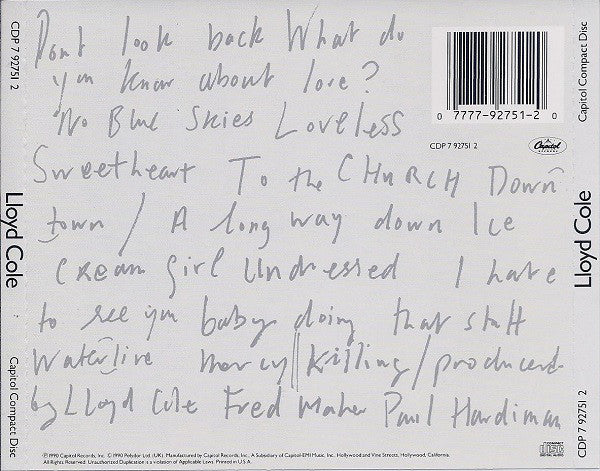 CDP 7 92751 2
Lloyd Cole
Capitol Compact Disc
Dont look back What do
you know about love?
No Blue Skies Loveless
Sweetheart To the CHURCH Down
town / A long way down Ice
Cream Girl Undressed I hate
to see you baby doing that stuff
Waterline mercy killing / produced
by Lloyd Cole Fred Maher Paul Hardiman
0 7777-92751-2 0
CDP 7 92751 2
Capitol
RECORDS
℗1990 Capitol Records, Inc. © 1990 Polydor Ltd. (UK). Manufactured by Capitol Records, Inc., A Subsidiary of Capitol-EMI Music, Inc. Hollywood and Vine Streets, Hollywood, California.
All Rights Reserved. Unauthorized Duplication is a violation of Applicable Laws. Printed in U.S.A.
COMPACT
disc
DIGITAL AUDIO
Capitol Compact Disc
Lloyd Cole
CDP 7 92751 2